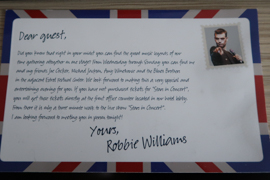 Dear guest,
Did you know that right in your hotel you can find the great music legends of our
time gathering together on one stage? From Wednesday through Sunday you can find me
and my friends Joe Cocker, Michael Jackson, Amy Winehouse and the Blues Brothers
in the adjacent Estrel Festival Center. We look forward to making this a very special and
entertaining evening for you. If you have not purchased tickets for "Stars in Concert",
you will get these tickets directly at the front office counter located in our hotel lobby.
From there it is only a short minute walk to the live show "Stars in Concert".
I am looking forward to meeting you in person tonight!
Yours,
Robbie Williams